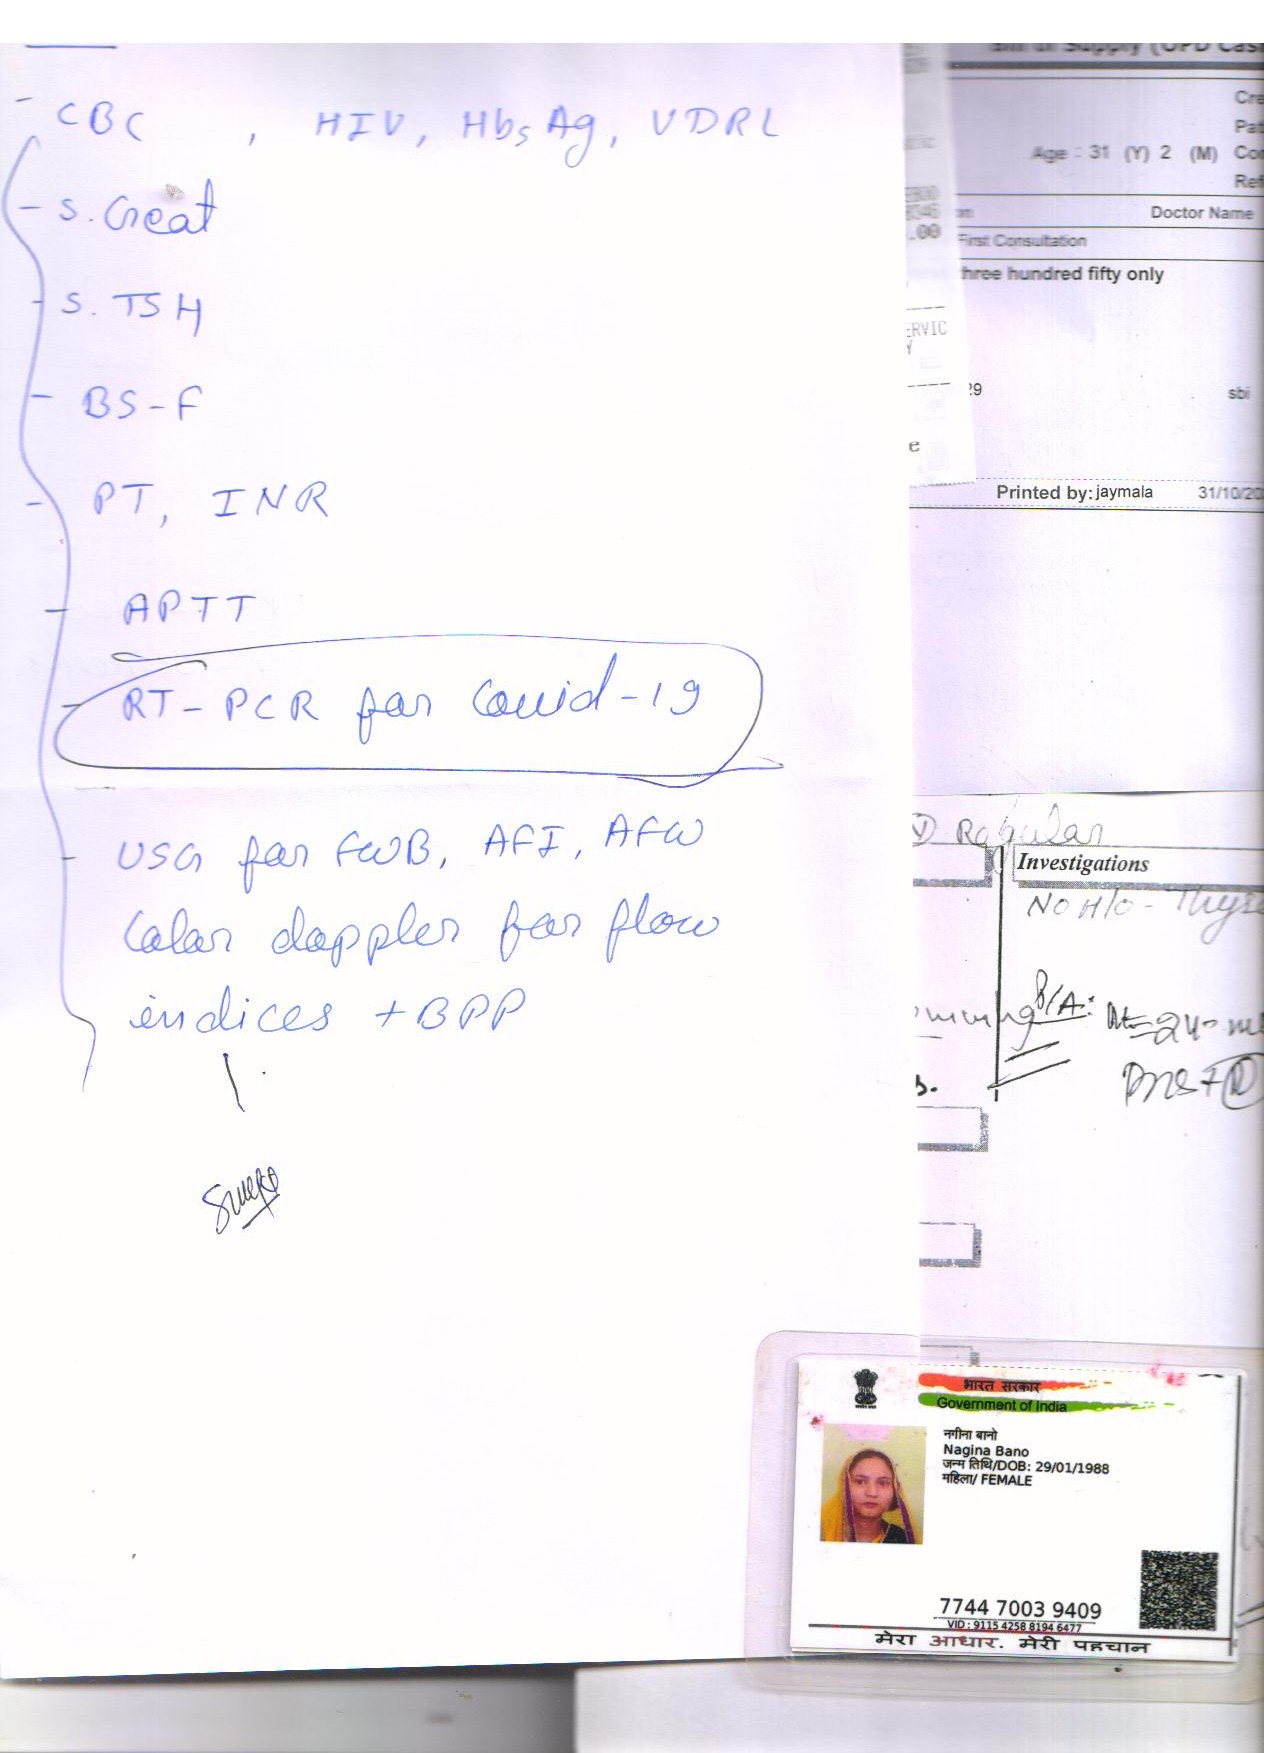 - CBC , HIV, HbsAg, VDRL
- S. Creat
- S. TSH
- BS-F
- PT, INR
- APTT
- RT-PCR for Covid-19
- USG for FWB, AFI, AFW
Color doppler for flow
indices + BPP
Bill of Supply (OPD Cas
Cre
Pat
Age : 31 (Y) 2 (M) Co
Ref
Doctor Name
.00 First Consultation
three hundred fifty only
ERVIC
29 sbi
e
Printed by: jaymala 31/10/20
Regular
Investigations
NO H/O -
P/A:
भारत सरकार
Government of India
नगीना बानो
Nagina Bano
जन्म तिथि/DOB: 29/01/1988
महिला/ FEMALE
7744 7003 9409
VID : 9115 4258 8194 6477
मेरा आधार, मेरी पहचान